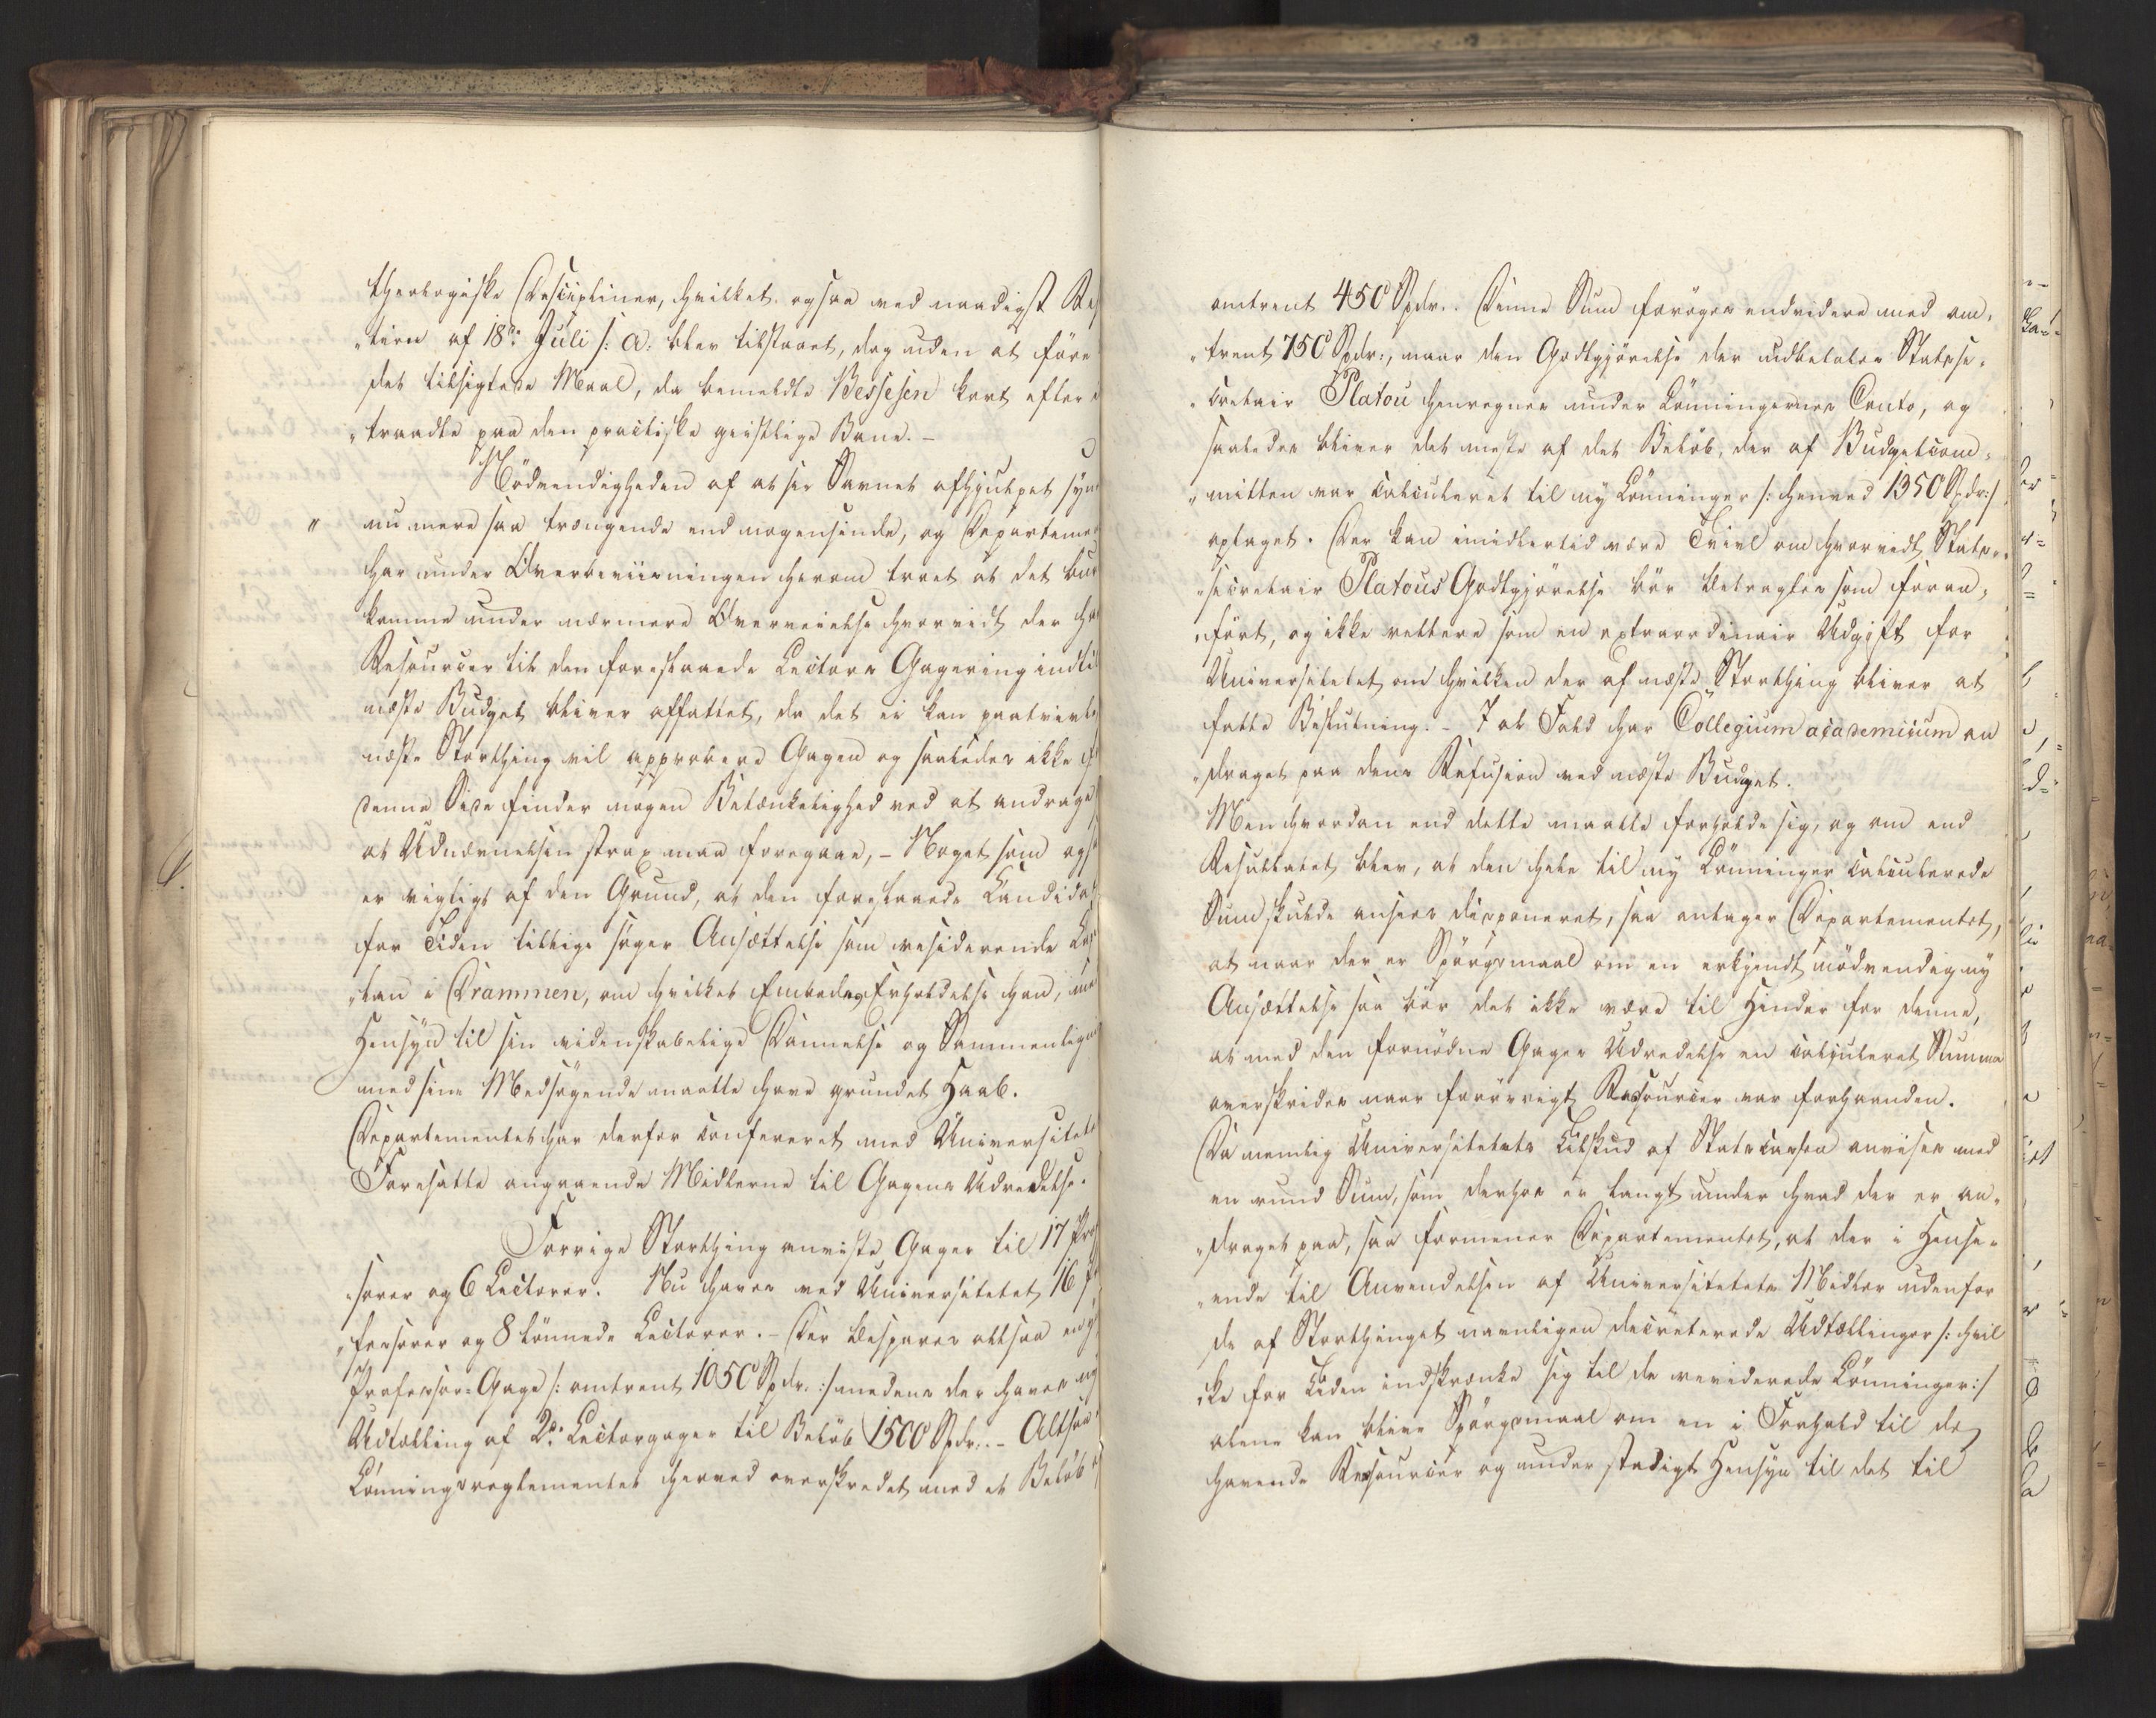 theologiske Discipliner, hvilket ogsaa ved naadigst Re
„tion af 18de Juli s: A: blev tilstaaet, dog uden at føre
det tilsigtede Maal, da bemeldte Bessesen kort efter
„traadte paa den practiske geistlige Bane. –
Nödvendigheden af at see Savnet afhjulpet syn
„ nu mere saa trængende end nogensinde, og Departeme
har under Overbeviisningen herom troet at det bur
komme under nærmere Overveielse hvorvidt der ha
Resourcer til den foreslaaede Lectors Gagering indtil
næste Budget bliver affattet, da det ei kan paatvivle
næste Storthing vil approbere Gagen og saaledes ikke
denne Side finder nogen Betænkelighed ved at andrage
at Udnævnelsen strax maa foregaae, – Noget som ogs
er vigtigt af den Grund, at den foreslaaede Candidat
for Tiden tillige søger Ansættelse som residerende Ca
„lan i Drammen, om hvilket Embedes Erholdelse han, me
Hensyn til sin videnskabelige Dannelse og Sammenlign
med sine Medsøgende maatte have grundet Haab.
Departementet har derfor confereret med Universitet
Foresatte angaaende Midlerne til Gagens Udredelse.
Forrige Storthing anviste Gager til 17 Pro
sorer og 6 Lectorer. Nu haves ved Universitetet 16
„fessorer og 8 lønnede Lectorer. – Der besparer altsaa en
Professor-Gage /: omtrent 1050 Spdr. :/ medens der haves
Udtælling af 2de Lectorgager til Beløb 1500 Spdr. – Altsaa
Lønningsreglementet herved overskredet med et Beløb
omtrent 450 Spdr.. Denne Sum forøges endvidere med om„
„trent 750 Spdr:, naar den Godtgjörelse der udbetales Statsse„
„cretair Platou henregnes under Lønningernes Conto, og
saaledes bliver det meste af det Beløb, der af Budgetcom„
„mitteen var calculeret til ny Lønninger /: henved 1350 Spdr:/
optaget. Der kan imidlertid være Tvivl om hvorvidt Stats„
„secretair Platous Godtgjörelse bör betragtes som foran„
„ført, og ikke rettere som en extraordinair Udgift for
Universitetet om hvilken der af næste Storthing bliver at
fatte Beslutning. – I al Fald har Collegium academicum an
„draget paa dens Refusion ved næste Budget.
Men hvordan end dette maatte forholde sig, og om end
Resultatet blev, at den hele til ny Lønninger calculerede
Sum skulde ansees disponeret, saa antager Departementet,
at naar der er Spørgsmaal om en erkjendt nödvendig ny
Ansættelse saa bör det ikke være til Hinder for denne,
at med den fornødne Gages Udredelse en calculeret Summa
overskrides naar forøvrigt Resourcer var forhaanden.
Da nemlig Universitetets Tilskud af Statscassen anvises med
en rund Sum, som derhos er langt under hvad der er an„
„draget paa, saa formener Departementet, at der i Hense„
„ende til Anvendelsen af Universitetets Midler udenfor
de af Storthinget navnligen decreterede Udtællinger /: hvil
„ke for Tiden indskrænke sig til de reviderede Lønninger:/
alene kan blive Spørgsmaal om en i Forhold til de
havende Resourcer og under stadigt Hensyn til det til